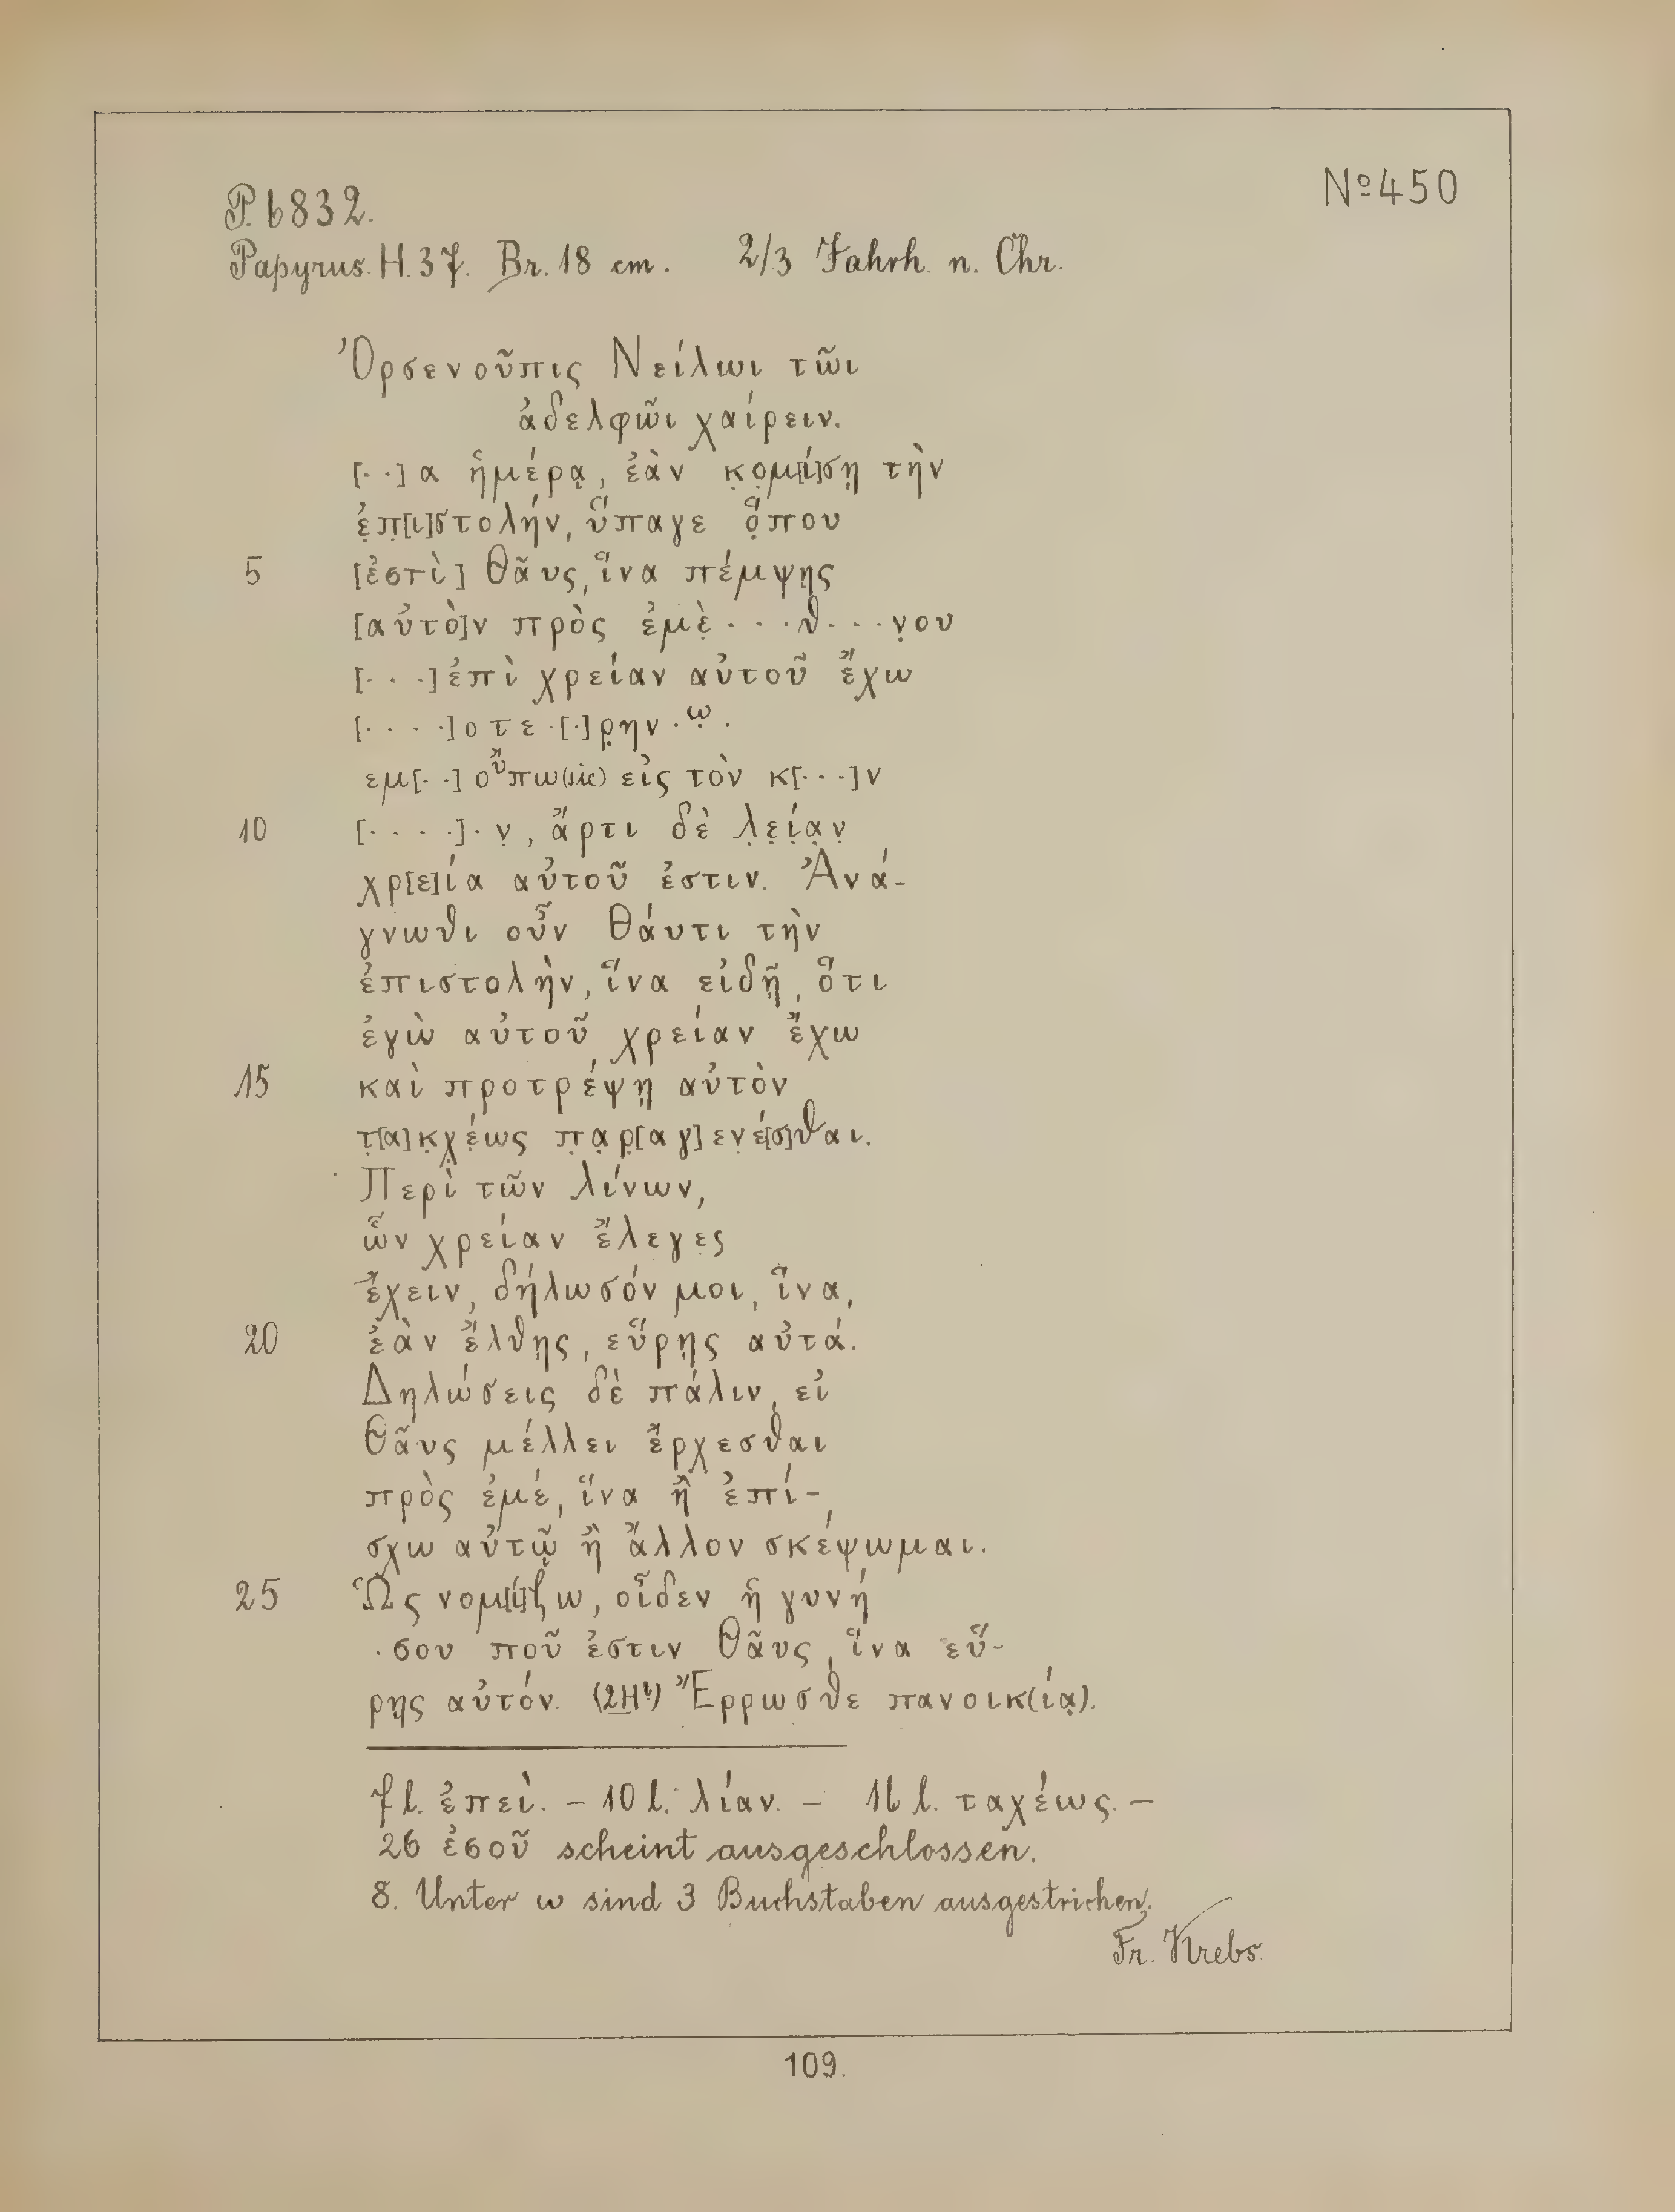 P. 6832.
No 450
Papyrus. H. 37. Br. 18 cm. 2/3 Jahrh. n. Chr.
Ὀρσενοῦπις Νείλωι τῶι
ἀδελφῶι χαίρειν.
[··]α ἡμέρᾳ, ἐὰν κ̣ο̣μ[ί]σῃ τὴν
ἐ̣π̣[ι]στολήν, ὕπαγε ὅ̣που
5 [ἐστὶ] Θᾶυς, ἵνα πέμψῃς
[αὐτὸ]ν πρὸς ἐμὲ̣···θ···ν̣ου
[···]ἐπὶ χρείαν αὐτοῦ ἔχω
[····]οτε[·]ρ̣ην·ω̣·
εμ[··] οὔπω(sic) εἰς τὸν κ[···]ν
10 [····]·ν̣, ἄρτι δὲ λ̣ε̣ί̣α̣ν̣
χρ[ε]ία αὐτοῦ ἐστιν. Ἀνά-
γνωθι οὖν Θάυτι τὴν
ἐπιστολὴν, ἵνα εἰδῇ, ὅτι
ἐγὼ αὐτοῦ χρείαν ἔχω
15 καὶ προτρέψῃ αὐτὸν
τ̣[α]κ̣χ̣έ̣ως π̣α̣ρ̣[αγ]εν̣έ[σ]θαι.
Περὶ τῶν λίνων,
ὧν χρείαν ἔλεγες
ἔχειν, δήλωσόν μοι, ἵνα,
20 ἐὰν ἔλθῃς, εὕρῃς αὐτά.
Δηλώσεις δὲ πάλιν, εἰ
Θᾶυς μέλλει ἔρχεσθαι
πρὸς ἐμέ, ἵνα ἢ ἐπί-
σχω αὐτῷ ἢ ἄλλον σκέψωμαι.
25 Ὡς νομ[ί]ζω, οἶδεν ἡ γυνή
·σου ποῦ ἐστιν Θᾶυς, ἵνα εὕ-
ρῃς αὐτόν. (2 Hd) Ἔρρωσθε πανοικ(ίᾳ).
7 l. ἐπεὶ. – 10 l. λίαν. – 16 l. ταχέως. –
26 ἐσοῦ scheint ausgeschlossen.
8. Unter ω sind 3 Buchstaben ausgestrichen.
Fr. Krebs.
109.